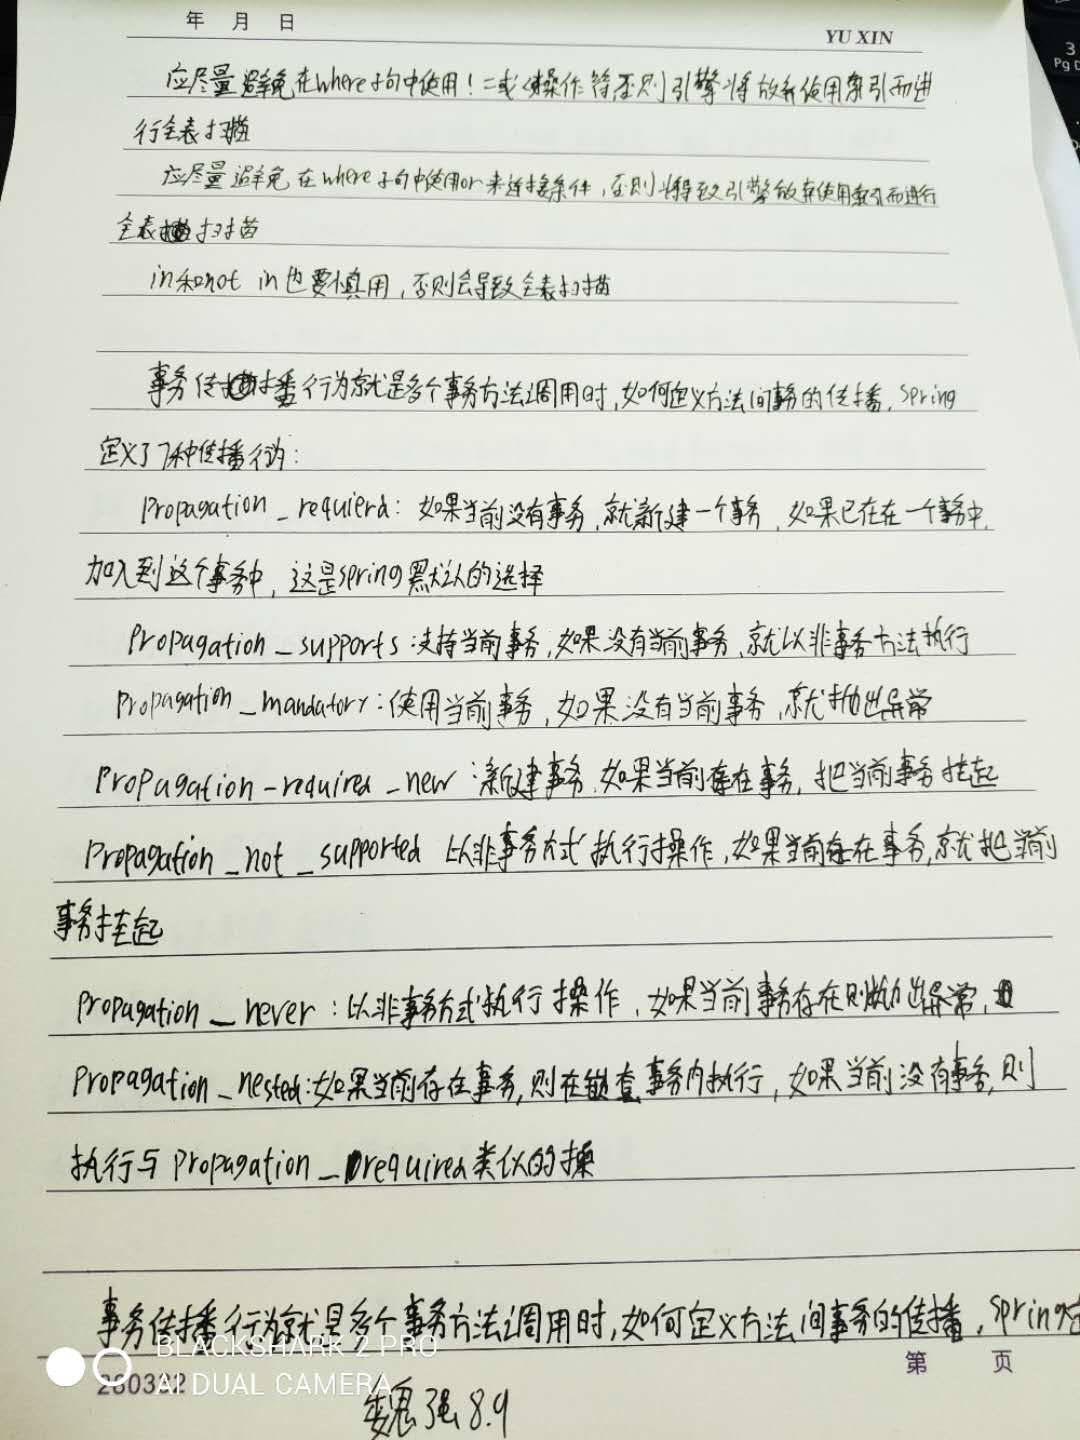 年 月 日
YU XIN
应尽量避免在where子句中使用！=或<>操作符否则引擎将放弃使用索引而进
行全表扫描
应尽量避免在where子句中使用or来连接条件，否则将导致引擎放弃使用索引而进行
全表扫描
in和not in也要慎用，否则会导致全表扫描
事务传播行为就是多个事务方法调用时，如何定义方法间事务的传播，spring
定义了7种传播行为：
Propagation_requierd：如果当前没有事务，就新建一个事务，如果已在在一个事务中，
加入到这个事务中，这是spring默认的选择
Propagation_supports：支持当前事务，如果没有当前事务，就以非事务方法执行
Propagation_mandatory：使用当前事务，如果没有当前事务，就抛出异常
Propagation_required_new：新建事务，如果当前存在事务，把当前事务挂起
Propagation_not_supported 以非事务方式执行操作，如果当前存在事务，就把当前
事务挂起
Propagation_never：以非事务方式执行操作，如果当前事务存在则抛出异常，
Propagation_nested：如果当前存在事务，则在嵌套事务内执行，如果当前没有事务，则
执行与Propagation_required类似的操
事务传播行为就是多个事务方法调用时，如何定义方法间事务的传播，spring定
第 页
BLACKSHARK 2 PRO
AI DUAL CAMERA
260322
魏强8.9
3
Pg D